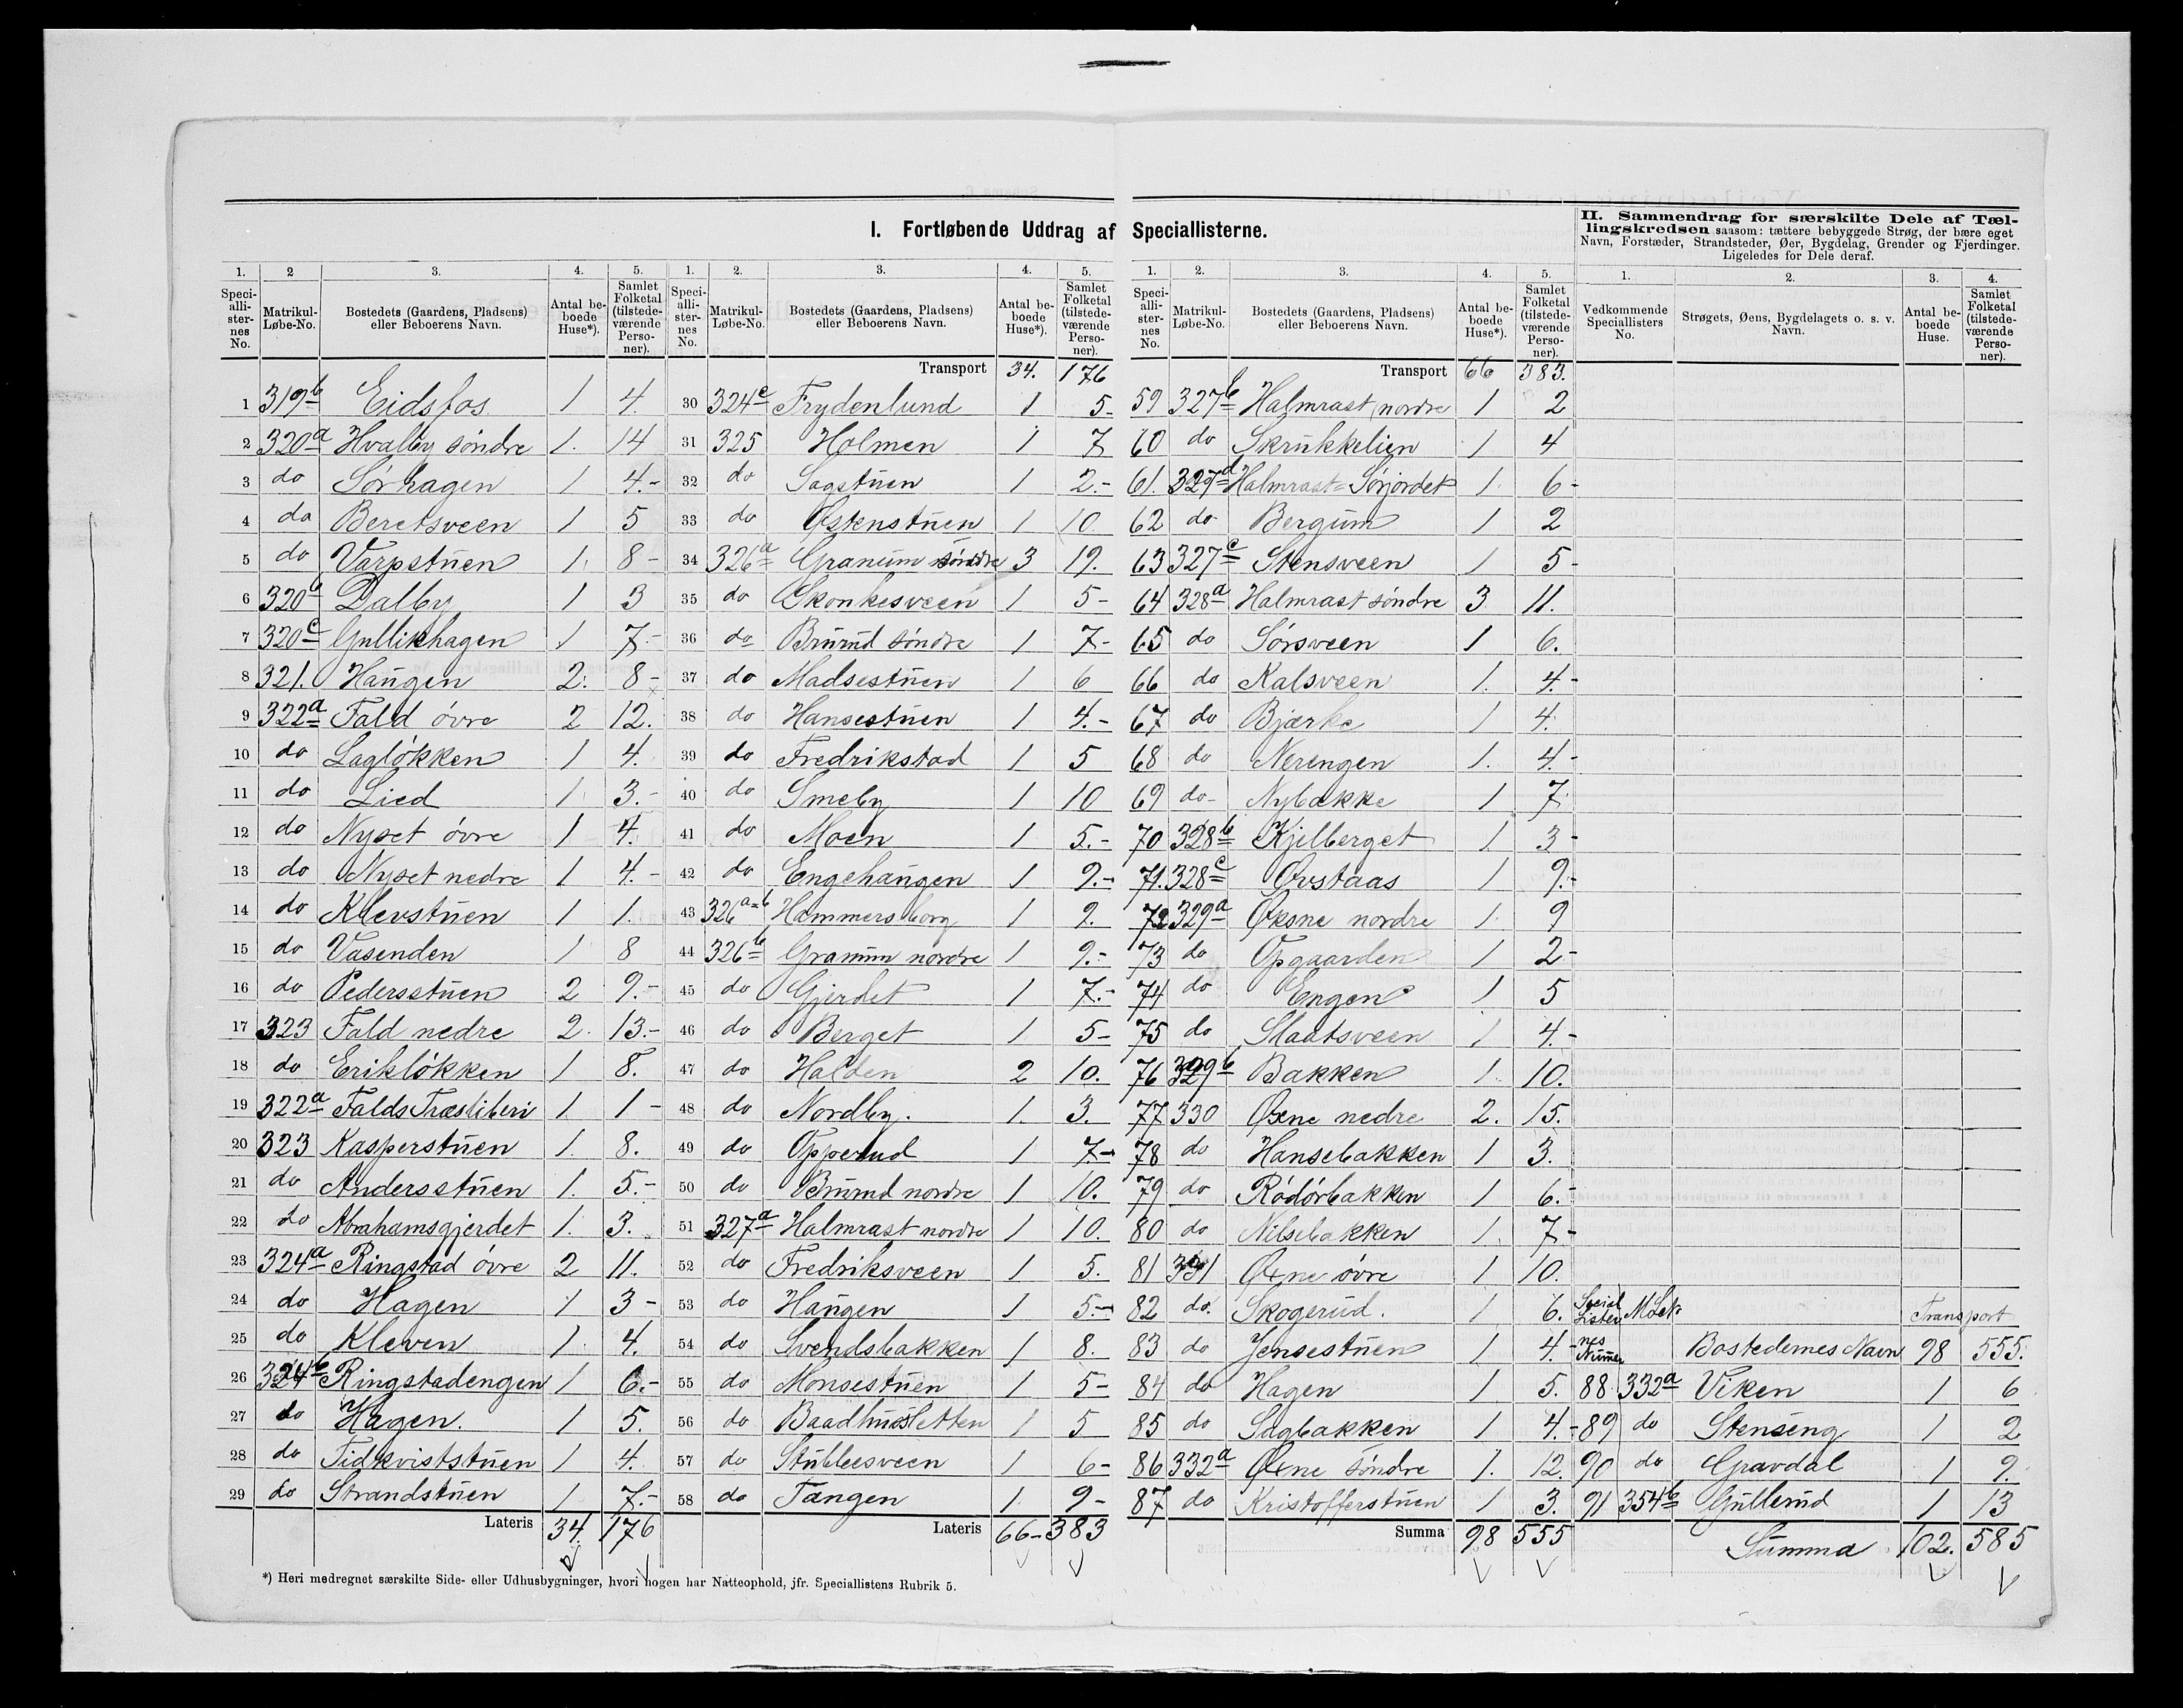 I. Fortløbende Uddrag af Speciallisterne.
II. Sammendrag for særskilte Dele af Tæl-
lingskredsen saasom: tættere bebyggede Strøg, der bære eget
Navn, Forstæder, Strandsteder, Øer, Bygdelag, Grender og Fjerdinger.
Ligeledes for Dele deraf.
1. 2 3. 4. 5.
Speciallisternes No. Matrikul-Løbe-No. Bostedets (Gaardens, Pladsens) eller Beboerens Navn. Antal beboede Huse*). Samlet Folketal (tilstedeværende Personer).
1 319b Eidsfos 1 4.
2 320a Hvalby söndre 1. 14
3 do Sörhagen 1 4.-
4 do Beretsveen 1 5
5 do Varpstuen 1. 8-
6 320b Dalby 1 3
7 320c Gullikhagen 1 7.-
8 321. Haugen 2. 8-
9 322a Fald övre 2 12.
10 do Laglökken 1 4.
11 do Lied 1 3.-
12 do Nyset övre 1 4.
13 do Nyset nedre 1 4.-
14 do Klevstuen 1 1.
15 do Vasenden 1 8
16 do Pedersstuen 2 9.-
17 323 Fald nedre 2. 13.-
18 do Eriklökken 1 8.
19 322a Falds Træsliberi 1. 1-
20 323 Kasperstuen 1. 8.
21 do Andersstuen 1. 5.-
22 do Abrahamsgjerdet 1. 3.
23 324a Ringstad övre 2 11.
24 do Hagen 1 3-
25 do Kleven 1. 4.
26 324b Ringstadengen 1 6.-
27 do Hagen. 1 5.
28 do Tidkviststuen 1 4.
29 do Strandstuen 1 7.-
Lateris 34. 176
1. 2. 3. 4. 5.
Speciallisternes No. Matrikul-Løbe-No. Bostedets (Gaardens, Pladsens) eller Beboerens Navn. Antal beboede Huse*). Samlet Folketal (tilstedeværende Personer).
Transport 34. 176
30 324c Frydenlund 1 5-
31 325 Holmen 1 7
32 do Sagstuen 1 2.-
33 do Østenstuen 1 10.
34 326a Granum söndre 3 19.
35 do Skonkesveen 1 5-
36 do Brurud söndre 1 7-
37 do Madsestuen 1 6
38 do Hansestuen 1 4.-
39 do Fredrikstad 1 5
40 do Smeby 1 10
41 do Moen 1 5.-
42 do Engehaugen 1 9.-
43 326a=b Hammersborg 1 9.
44 326b Granum nordre 1 9.-
45 do Gjerdet 1 7.-
46 do Berget 1 5-
47 do Halden 2 10.
48 do Nordby. 1. 3.
49 do Opperud 1 7.-
50 do Brurud nordre 1 10.
51 327a Halmrast nordre 1 10.
52 do Fredriksveen 1 5.
53 do Haugen 1 5.-
54 do Svendsbakken 1 8.
55 do Monsestuen 1 5-
56 do Baadhussletten 1 5
57 do Stubbesveen 1 6-
58 do Tangen 1. 9-
Lateris 66- 383
1. 2. 3. 4. 5.
Speciallisternes No. Matrikul-Løbe-No. Bostedets (Gaardens, Pladsens) eller Beboerens Navn. Antal beboede Huse*). Samlet Folketal (tilstedeværende Personer).
Transport 66 383.
59 327b Halmrast nordre 1 2
60 do Skrukkelien 1 4
61. 327d Halmrast=Sörjordet 1. 6-
62 do Bergum 1 2
63 327c Stensveen 1 5-
64 328a Halmrast söndre 3 11.
65 do Sörsveen 1 6.
66 do Kalsveen 1. 4.-
67 do Bjærke 1 4.
68 do Nerengen 1. 4.-
69 do Nybakke 1 7.
70 328b Kjelberget 1. 3-
71. 328c Øvstaas 1 9.-
72 329a Øxne nordre 1. 9
73 do Opgaarden 1 2-
74 do Engen 1 5
75 do Slaatsveen 1 4.-
76 329b Bakken 1. 10.
77 330 Øxne nedre 2. 15.
78 do Hansebakken 1 3.
79 do Rödörbakken 1 6.-
80 do Nilsebakken 1. 7-
81 331 Øxne övre 1 10.
82 do. Skogerud. 1 6.
83 do Jensestuen 1 4.-
84 do Hagen 1 5.
85 do Sagbakken 1 4.-
86 332a Øxne söndre 1. 12.
87 do Kristofferstuen 1 3.
Summa 98 555
1. 2. 3. 4.
Vedkommende Speciallisters No. Strøgets, Øens, Bygdelagets o. s. v. Navn. Antal beboede Huse. Samlet Folketal (tilstedeværende Personer).
Transport
Bostedernes Navn 98 555.
88 332a Viken 1 6
89 do Stenseng 1 2
90 do Gravdal 1 9.
91 354b Gullerud 1 13
Summa 102. 585
*) Heri medregnet særskilte Side- eller Udhusbygninger, hvori nogen har Natteophold, jfr. Speciallistens Rubrik 5.